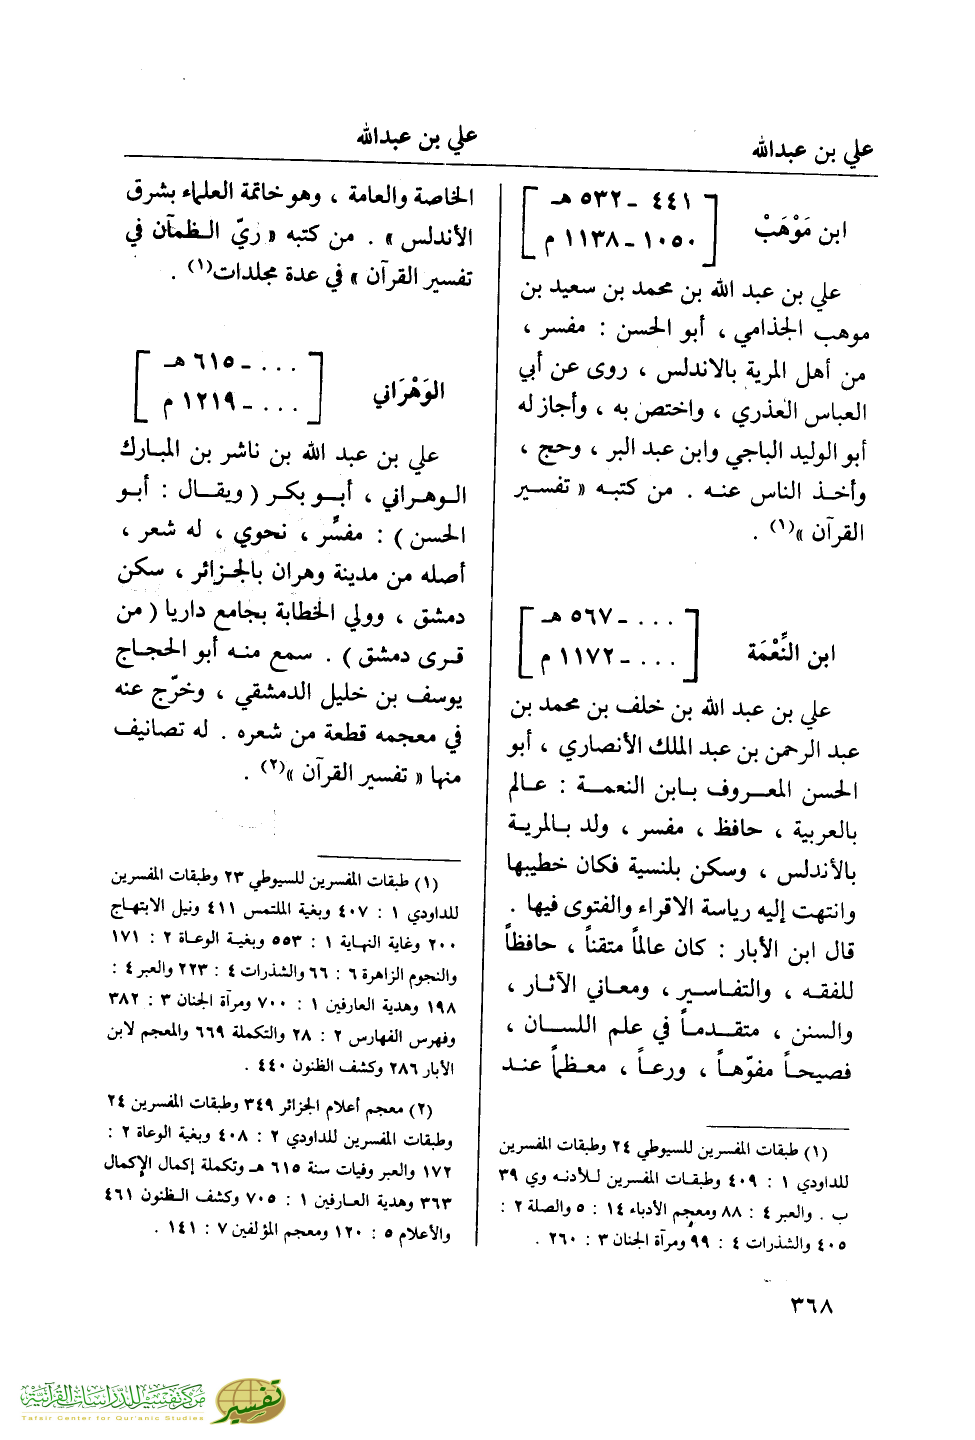 علي بن عبدالله
علي بن عبدالله
ابن مَوْهَبْ
٤٤١ - ٥٣٢ هـ
١٠٥٠ - ١١٣٨ م
علي بن عبد الله بن محمد بن سعيد بن
موهب الجذامي ، أبو الحسن : مفسر ،
من أهل المرية بالاندلس ، روى عن أبي
العباس العذري ، واختص به ، وأجاز له
أبو الوليد الباجي وابن عبد البر ، وحج ،
وأخذ الناس عنه . من كتبه « تفسير
القرآن »(١) .
ابن النِّعْمَة
... - ٥٦٧ هـ
... - ١١٧٢ م
علي بن عبد الله بن خلف بن محمد بن
عبد الرحمن بن عبد الملك الأنصاري ، أبو
الحسن المعروف بابن النعمة : عالم
بالعربية ، حافظ ، مفسر ، ولد بالمرية
بالأندلس ، وسكن بلنسية فكان خطيبها
وانتهت إليه رياسة الاقراء والفتوى فيها .
قال ابن الأبار : كان عالماً متقناً ، حافظاً
للفقه ، والتفاسير ، ومعاني الآثار ،
والسنن ، متقدماً في علم اللسان ،
فصيحاً مفوّهاً ، ورعاً ، معظماً عند
(١) طبقات المفسرين للسيوطي ٢٤ وطبقات المفسرين
للداودي ١ : ٤٠٩ وطبقات المفسرين للأدنه وي ٣٩
ب . والعبر ٤ : ٨٨ ومعجم الأدباء ١٤ : ٥ والصلة ٢ :
٤٠٥ والشذرات ٤ : ٩٩ ومرآة الجنان ٣ : ٢٦٠ .
الخاصة والعامة ، وهو خاتمة العلماء بشرق
الأندلس » . من كتبه « ريّ الظمآن في
تفسير القرآن » في عدة مجلدات(١) .
الوَهْرَاني
... - ٦١٥ هـ
... - ١٢١٩ م
علي بن عبد الله بن ناشر بن المبارك
الوهراني ، أبو بكر ( ويقال : أبو
الحسن ) : مفسِّر ، نحوي ، له شعر ،
أصله من مدينة وهران بالجزائر ، سكن
دمشق ، وولي الخطابة بجامع داريا ( من
قرى دمشق ) . سمع منه أبو الحجاج
يوسف بن خليل الدمشقي ، وخرّج عنه
في معجمه قطعة من شعره . له تصانيف
منها « تفسير القرآن »(٢) .
(١) طبقات المفسرين للسيوطي ٢٣ وطبقات المفسرين
للداودي ١ : ٤٠٧ وبغية الملتمس ٤١١ ونيل الابتهاج
٢٠٠ وغاية النهاية ١ : ٥٥٣ وبغية الوعاة ٢ : ١٧١
والنجوم الزاهرة ٦ : ٦٦ والشذرات ٤ : ٢٢٣ والعبر ٤ :
١٩٨ وهدية العارفين ١ : ٧٠٠ ومرآة الجنان ٣ : ٣٨٢
وفهرس الفهارس ٢ : ٢٨ والتكملة ٦٦٩ والمعجم لابن
الأبار ٢٨٦ وكشف الظنون ٤٤٠ .
(٢) معجم أعلام الجزائر ٣٤٩ وطبقات المفسرين ٢٤
وطبقات المفسرين للداودي ٢ : ٤٠٨ وبغية الوعاة ٢ :
١٧٢ والعبر وفيات سنة ٦١٥ هـ وتكملة إكمال الإكمال
٣٦٣ وهدية العارفين ١ : ٧٠٥ وكشف الظنون ٤٦١
والأعلام ٥ : ١٢٠ ومعجم المؤلفين ٧ : ١٤١ .
٣٦٨
مركز تفسير للدراسات القرآنية
Tafsir Center for Qur'anic Studies
تفسير